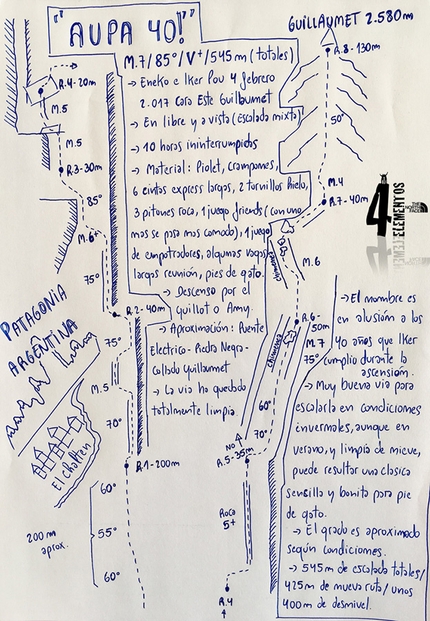 "AUPA 40!"
GUILLAUMET 2.580m
M.7/85°/V+/545m (totales)
→ Eneko e Iker Pou 4 febrero
2.017 Cara Este Guillaumet
→ En libre y a vista (Escalada mixta)
→ 10 horas ininterrumpidas
→ Material: Piolet, crampones,
6 cintas express largas, 2 tornillos hielo,
3 pitones roca, 1 juego friends (con uno
mas se pasa mas comodo), 1 juego
de empotradores, algunas vagas
largas reunión, pies de gato.
→ Descenso por el
guillot o Amy.
→ Aproximación: Puente
Electrico - Piedra Negra -
Colado Guillaumet
→ La via ha quedado
totalmente limpia
R.4-20m
M.5
M.5
R.3-30m
85°
M.6
75°
R.2-40m
75°
M.5
70°
R.1-200m
60°
55°
60°
200m
aprox.
PATAGONIA
ARGENTINA
El Chalten
R.8-130m
50°
M.4
R.7-40m
chimenea
M.6
R.6-
50m
M.7
75°
chimenea
60°
70°
NO
R.5-35m
Roca
5+
R.4
4
ELEMENTOS
THE NORTH FACE
→ El nombre es
en alusión a los
40 años que Iker
cumplio durante la
ascensión.
→ Muy buena via para
escalarla en condiciones
invernales, aunque en
verano, y limpia de nieve,
puede resultar una clasica
sencilla y bonita para pie
de gato.
→ El grado es aproximado
según condiciones.
→ 545m de escalada totales/
425m de nueva ruta/ unos
400m de desnivel.